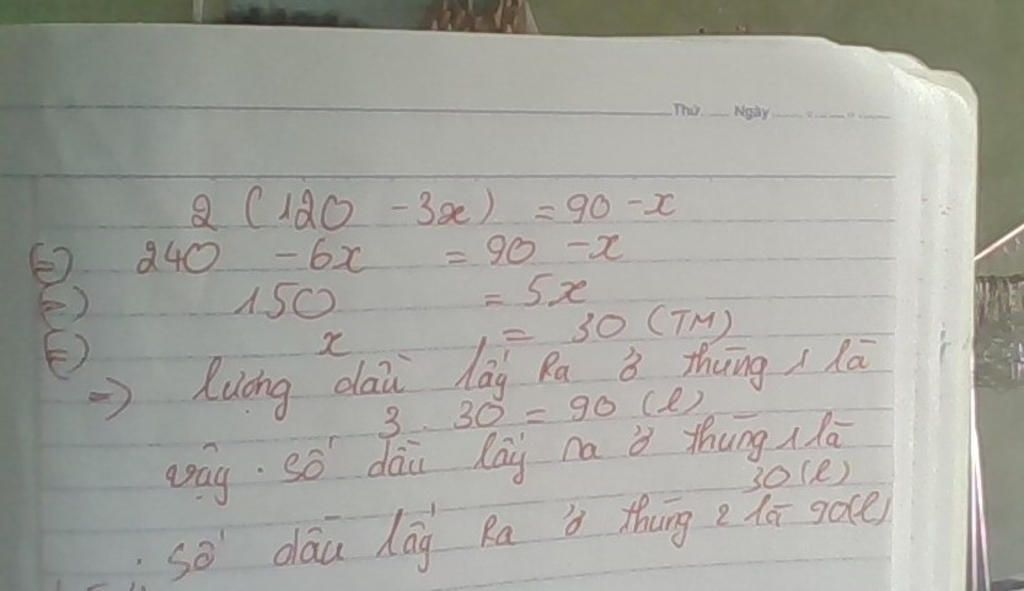 Thứ Ngày
2 (120 - 3x) = 90 - x
(=) 240 - 6x = 90 - x
(=) 150 = 5x
(=) x = 30 (TM)
=) lượng dầu lấy ra ở thùng 1 là
3 . 30 = 90 (l)
vậy . số dầu lấy ra ở thùng 1 là
30 (l)
. số dầu lấy ra ở thùng 2 là 90(l)